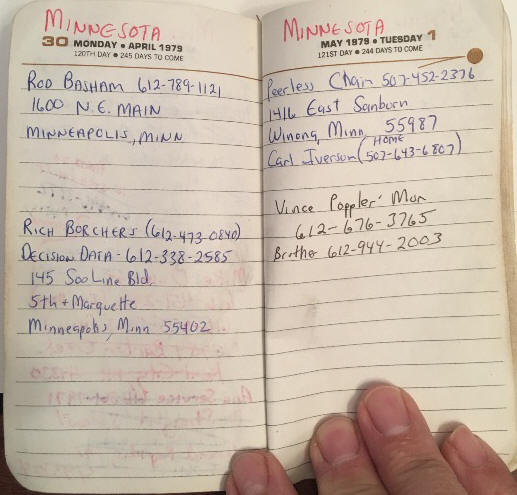 MINNESOTA
30 MONDAY • APRIL 1979
120TH DAY • 245 DAYS TO COME
ROD BASHAM 612-789-1121
1600 N.E. MAIN
MINNEAPOLIS, MINN
RICH BORCHERS (612-473-0840)
DECISION DATA - 612-338-2585
145 Soo Line Bld.
5th + Marquette
Minneapolis, Minn 55402
MINNESOTA
MAY 1979 • TUESDAY 1
121ST DAY • 244 DAYS TO COME
Peerless Chain 507-452-2376
1416 East Sanburn
Winona, Minn, 55987
HOME
Carl Iverson (507-643-6807)
Vince Poppler' Mom
612-676-3765
Brother 612-944-2003